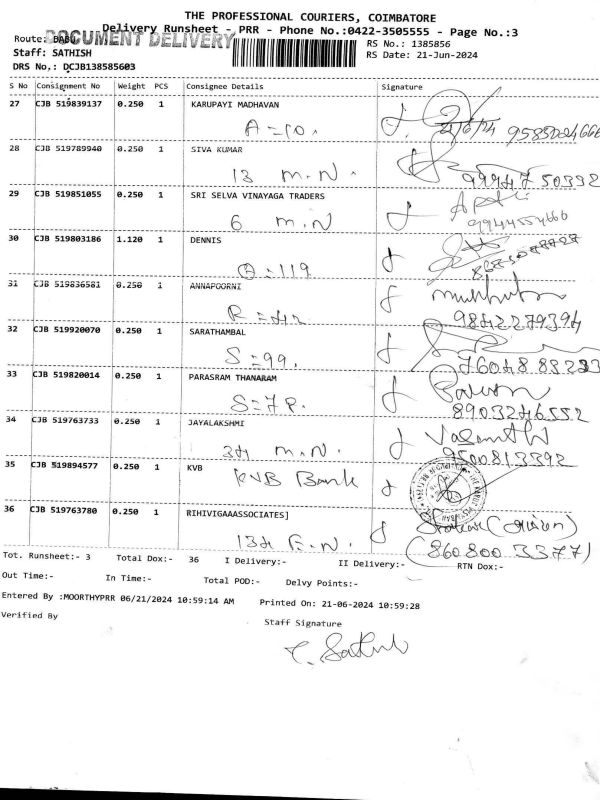 THE PROFESSIONAL COURIERS, COIMBATORE
Delivery Runsheet - PRR - Phone No.:0422-3505555 - Page No.:3
Route: BABU
DOCUMENT DELIVERY
RS No.: 1385856
Staff: SATHISH
RS Date: 21-Jun-2024
DRS No,: DCJB138585603
S No Consignment No Weight PCS Consignee Details Signature
27 CJB 519839137 0.250 1 KARUPAYI MADHAVAN
A = 10. 21/6/24
28 CJB 519789940 0.250 1 SIVA KUMAR
13 M.N. 99947 50332
29 CJB 519851055 0.250 1 SRI SELVA VINAYAGA TRADERS
6 M.N 9944554666
30 CJB 519803186 1.120 1 DENNIS
= 119
31 CJB 519836581 0.250 1 ANNAPOORNI
9842279394
32 CJB 519920070 0.250 1 SARATHAMBAL
S = 99.
33 CJB 519820014 0.250 1 PARASRAM THANARAM
S = 78. 8903246552
34 CJB 519763733 0.250 1 JAYALAKSHMI
M.N. Vasanthi
9500813392
35 CJB 519894577 0.250 1 KVB
KVB Bank
36 CJB 519763780 0.250 1 RIHIVIGAAASSOCIATES]
(860800 3377)
Tot. Runsheet:- 3 Total Dox:- 36 I Delivery:- II Delivery:- RTN Dox:-
Out Time:- In Time:- Total POD:- Delvy Points:-
Entered By :MOORTHYPRR 06/21/2024 10:59:14 AM Printed On: 21-06-2024 10:59:28
Verified By Staff Signature